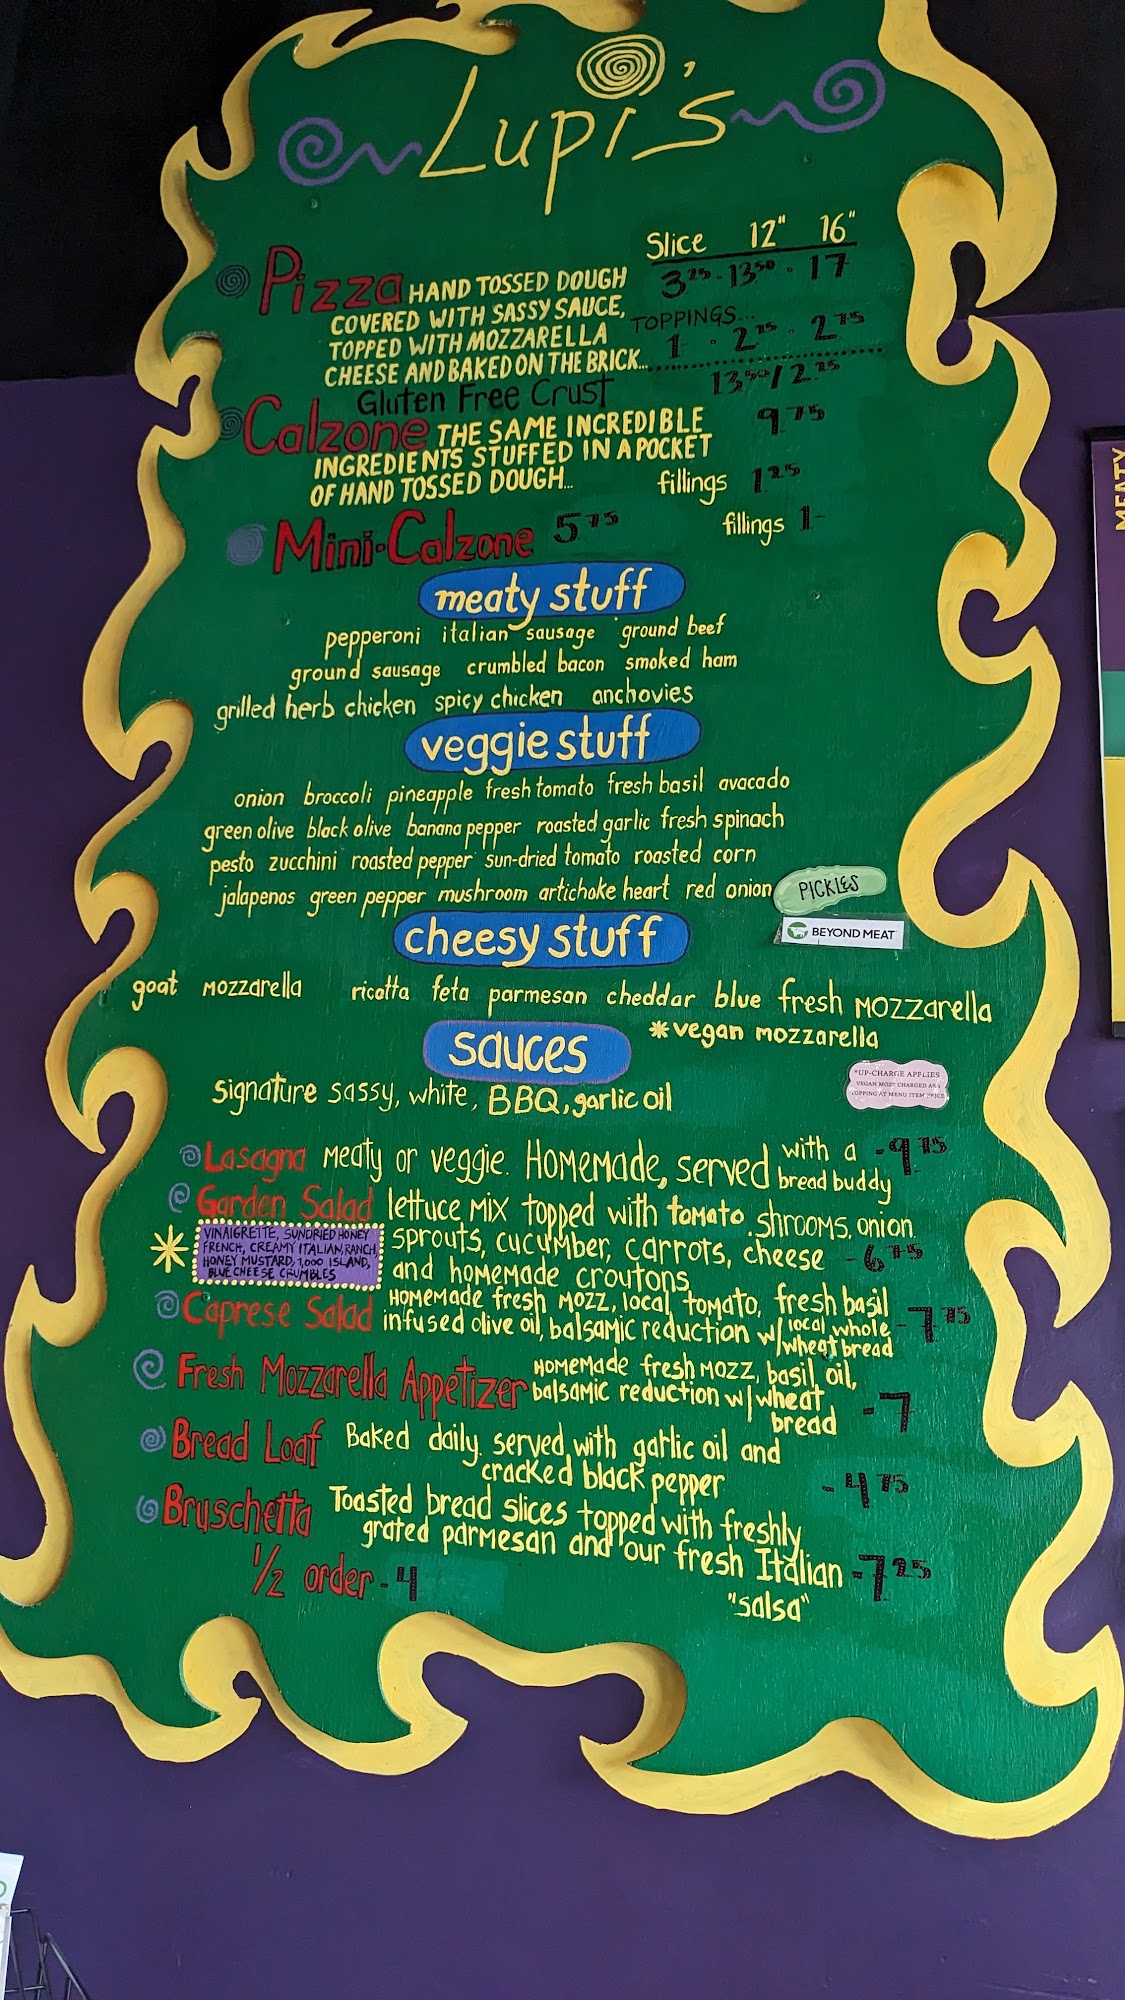 Lupi's
Slice 12" 16"
Pizza HAND TOSSED DOUGH 3.25 · 13.50 · 17
COVERED WITH SASSY SAUCE,
TOPPINGS...
TOPPED WITH MOZZARELLA 1 · 2.25 · 2.75
CHEESE AND BAKED ON THE BRICK...
Gluten Free Crust 13.50 / 2.25
Calzone THE SAME INCREDIBLE 9.75
INGREDIENTS STUFFED IN A POCKET
OF HAND TOSSED DOUGH... fillings 1.25
Mini-Calzone 5.75 fillings 1-
meaty stuff
pepperoni italian sausage ground beef
ground sausage crumbled bacon smoked ham
grilled herb chicken spicy chicken anchovies
veggie stuff
onion broccoli pineapple fresh tomato fresh basil avacado
green olive black olive banana pepper roasted garlic fresh spinach
pesto zucchini roasted pepper sun-dried tomato roasted corn
jalapenos green pepper mushroom artichoke heart red onion PICKLES
BEYOND MEAT
cheesy stuff
goat mozzarella ricotta feta parmesan cheddar blue fresh mozzarella
*vegan mozzarella
sauces
Signature sassy, white, BBQ, garlic oil
*UP-CHARGE APPLIES
VEGAN MOZZ CHARGED AS A
TOPPING AT MENU ITEM PRICE
Lasagna meaty or veggie. Homemade, served with a bread buddy -9.75
Garden Salad lettuce mix topped with tomato, shrooms, onion
sprouts, cucumber, carrots, cheese -6.75
and homemade croutons
* VINAIGRETTE, SUNDRIED HONEY
FRENCH, CREAMY ITALIAN, RANCH,
HONEY MUSTARD, 1,000 ISLAND,
BLUE CHEESE CRUMBLES
Caprese Salad Homemade fresh mozz, local tomato, fresh basil
infused olive oil, balsamic reduction w/local whole wheat bread -7.75
Fresh Mozzarella Appetizer Homemade fresh mozz, basil oil,
balsamic reduction w/wheat
bread -7
Bread Loaf Baked daily. served with garlic oil and
cracked black pepper -4.75
Bruschetta Toasted bread slices topped with freshly
grated parmesan and our fresh Italian -7.25
"salsa"
1/2 order -4
MEATY